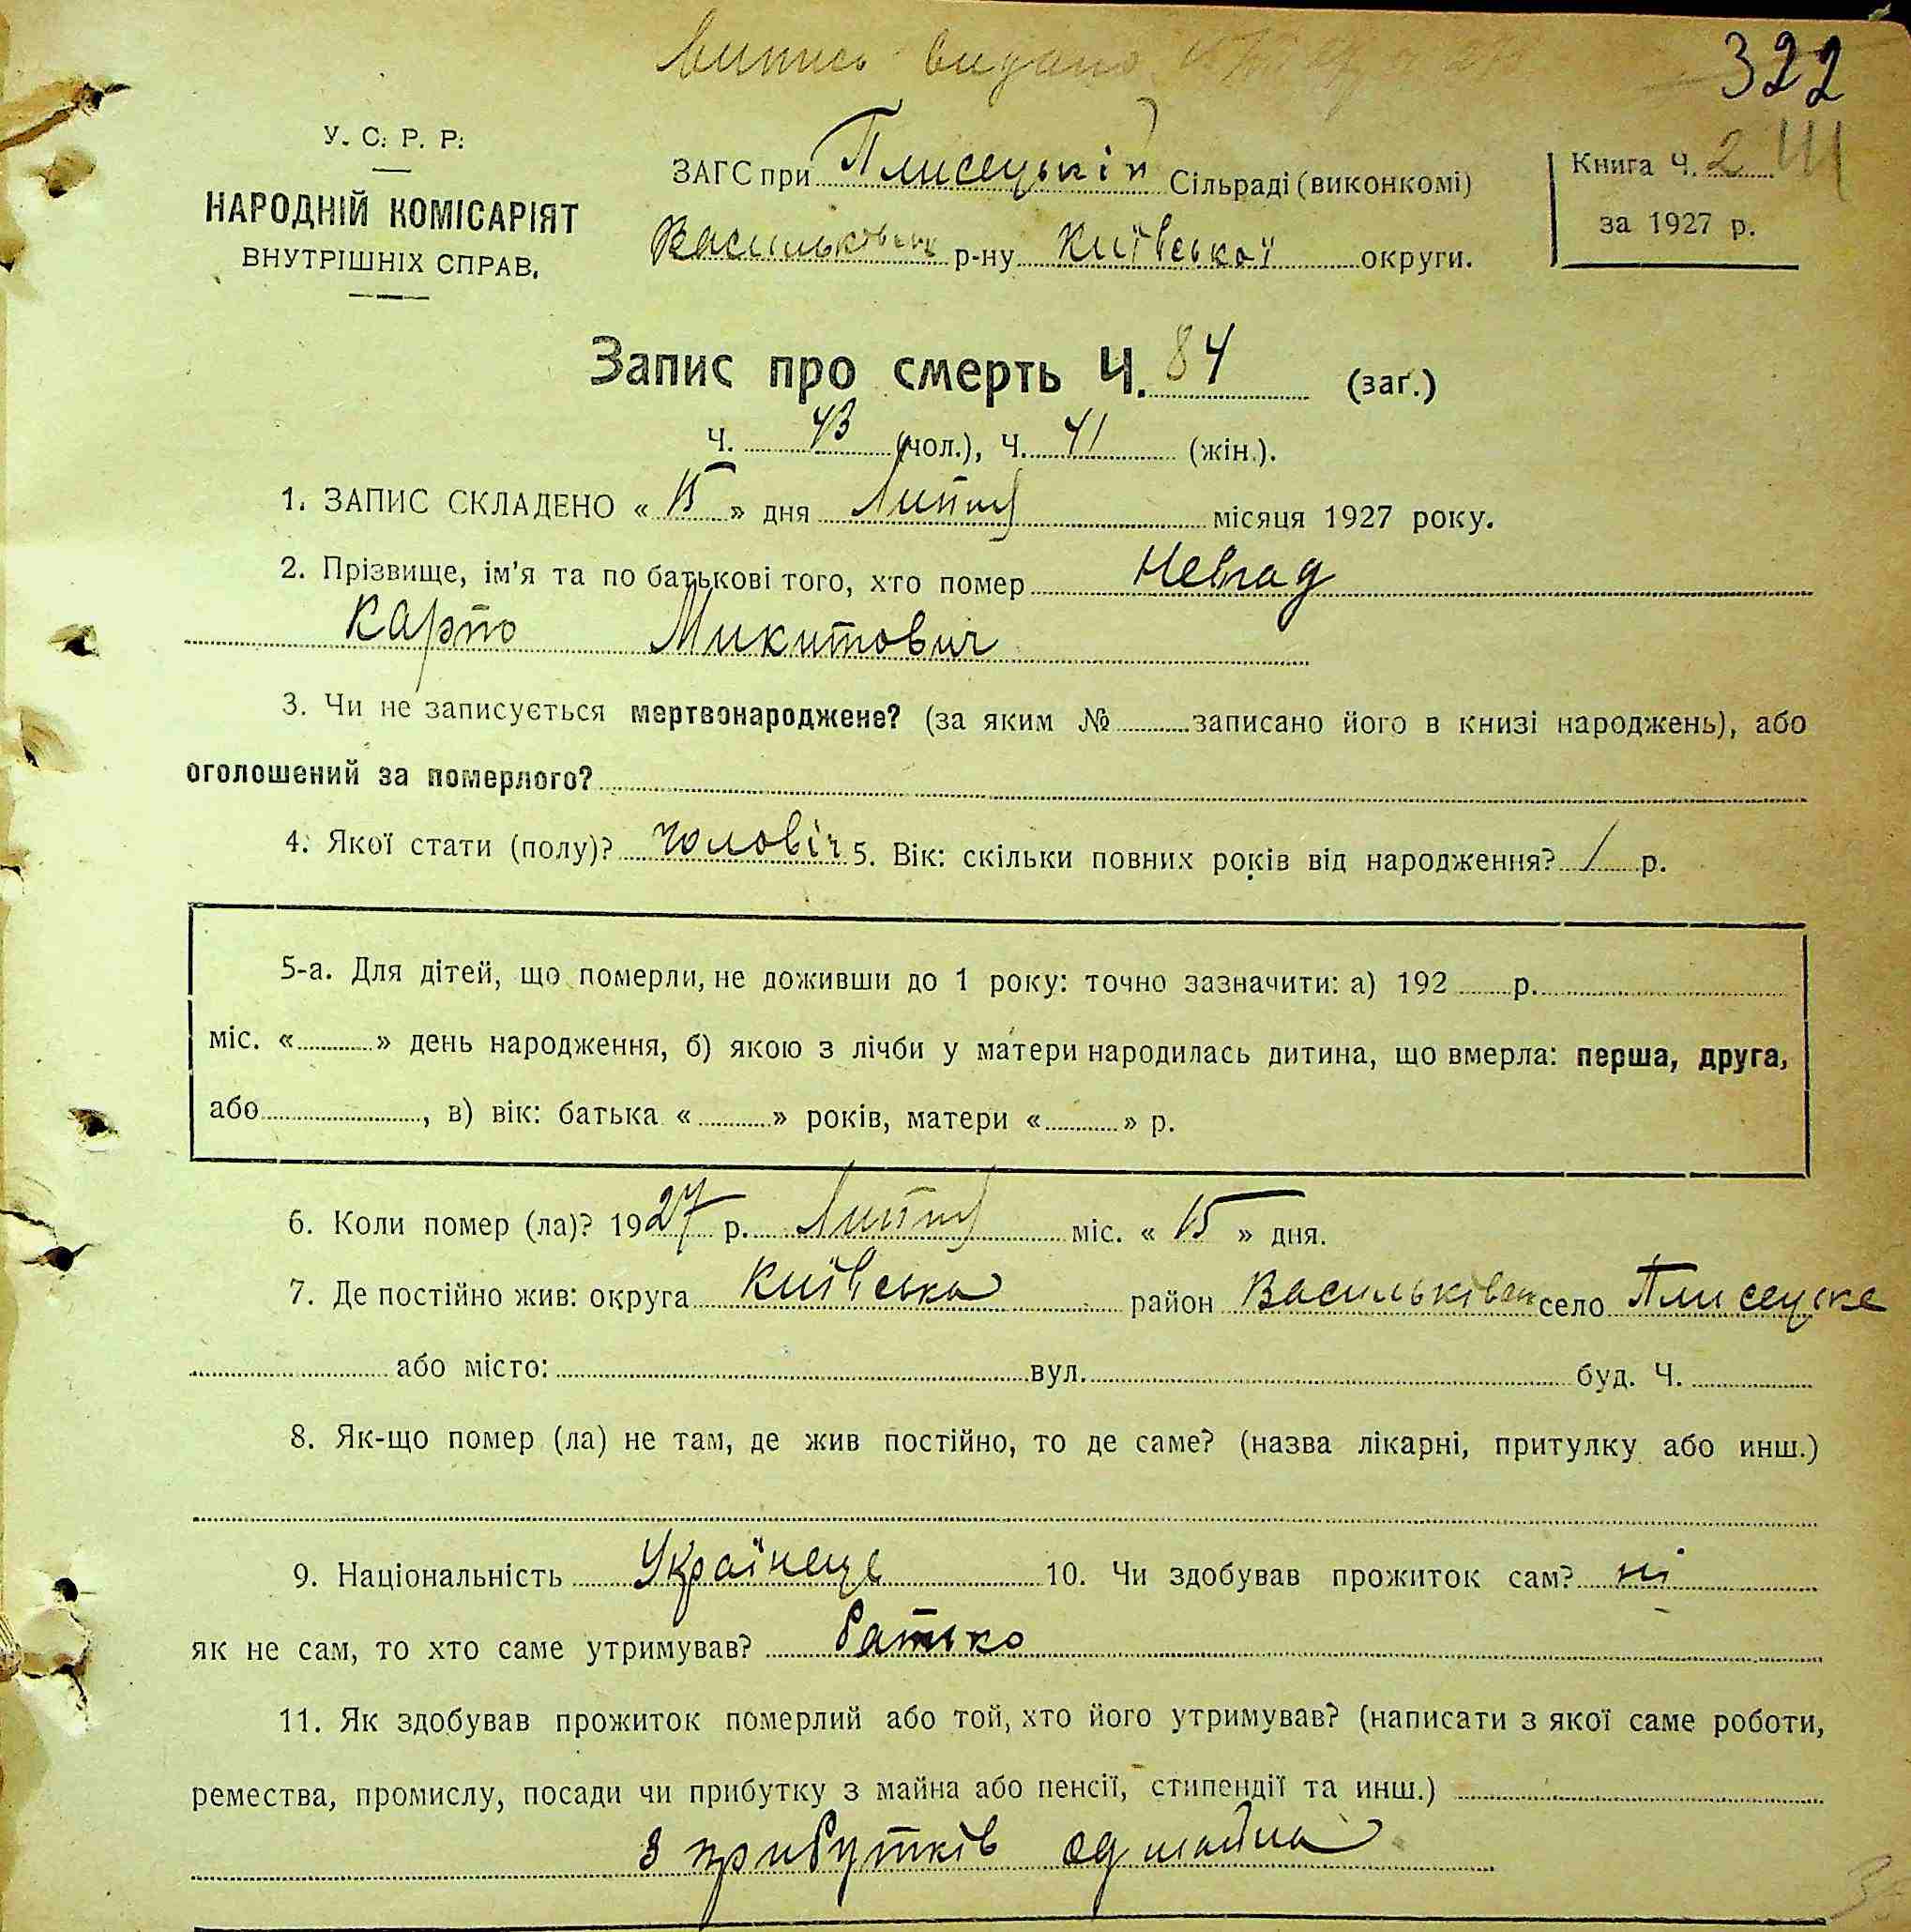 Випись видано
322
У. С. Р. Р.
НАРОДНІЙ КОМІСАРІЯТ
ВНУТРІШНІХ СПРАВ.
ЗАГС при Плисецькій Сільраді (виконкомі)
Васильківськ р-ну Київської округи.
Книга Ч. 2
за 1927 р.
Запис про смерть Ч. 84 (заг.)
Ч. 43 (чол.), Ч. 41 (жін.).
1. ЗАПИС СКЛАДЕНО « 15 » дня Липня місяця 1927 року.
2. Прізвище, ім'я та по батькові того, хто помер Невгад
Карпо Микитович
3. Чи не записується мертвонароджене? (за яким № записано його в книзі народжень), або
оголошений за померлого?
4. Якої стати (полу)? Чоловіч 5. Вік: скільки повних років від народження? 1 р.
5-а. Для дітей, що померли, не доживши до 1 року: точно зазначити: а) 192 р.
міс. « » день народження, б) якою з лічби у матери народилась дитина, що вмерла: перша, друга,
або , в) вік: батька « » років, матери « » р.
6. Коли помер (ла)? 1927 р. Липня міс. « 15 » дня.
7. Де постійно жив: округа Київська район Васильківськ село Плисецке
або місто: вул. буд. Ч.
8. Як-що помер (ла) не там, де жив постійно, то де саме? (назва лікарні, притулку або инш.)
9. Національність Українець 10. Чи здобував прожиток сам? ні
як не сам, то хто саме утримував? батько
11. Як здобував прожиток померлий або той, хто його утримував? (написати з якої саме роботи,
ремества, промислу, посади чи прибутку з майна або пенсії, стипендії та инш.)
з прибутків од майна